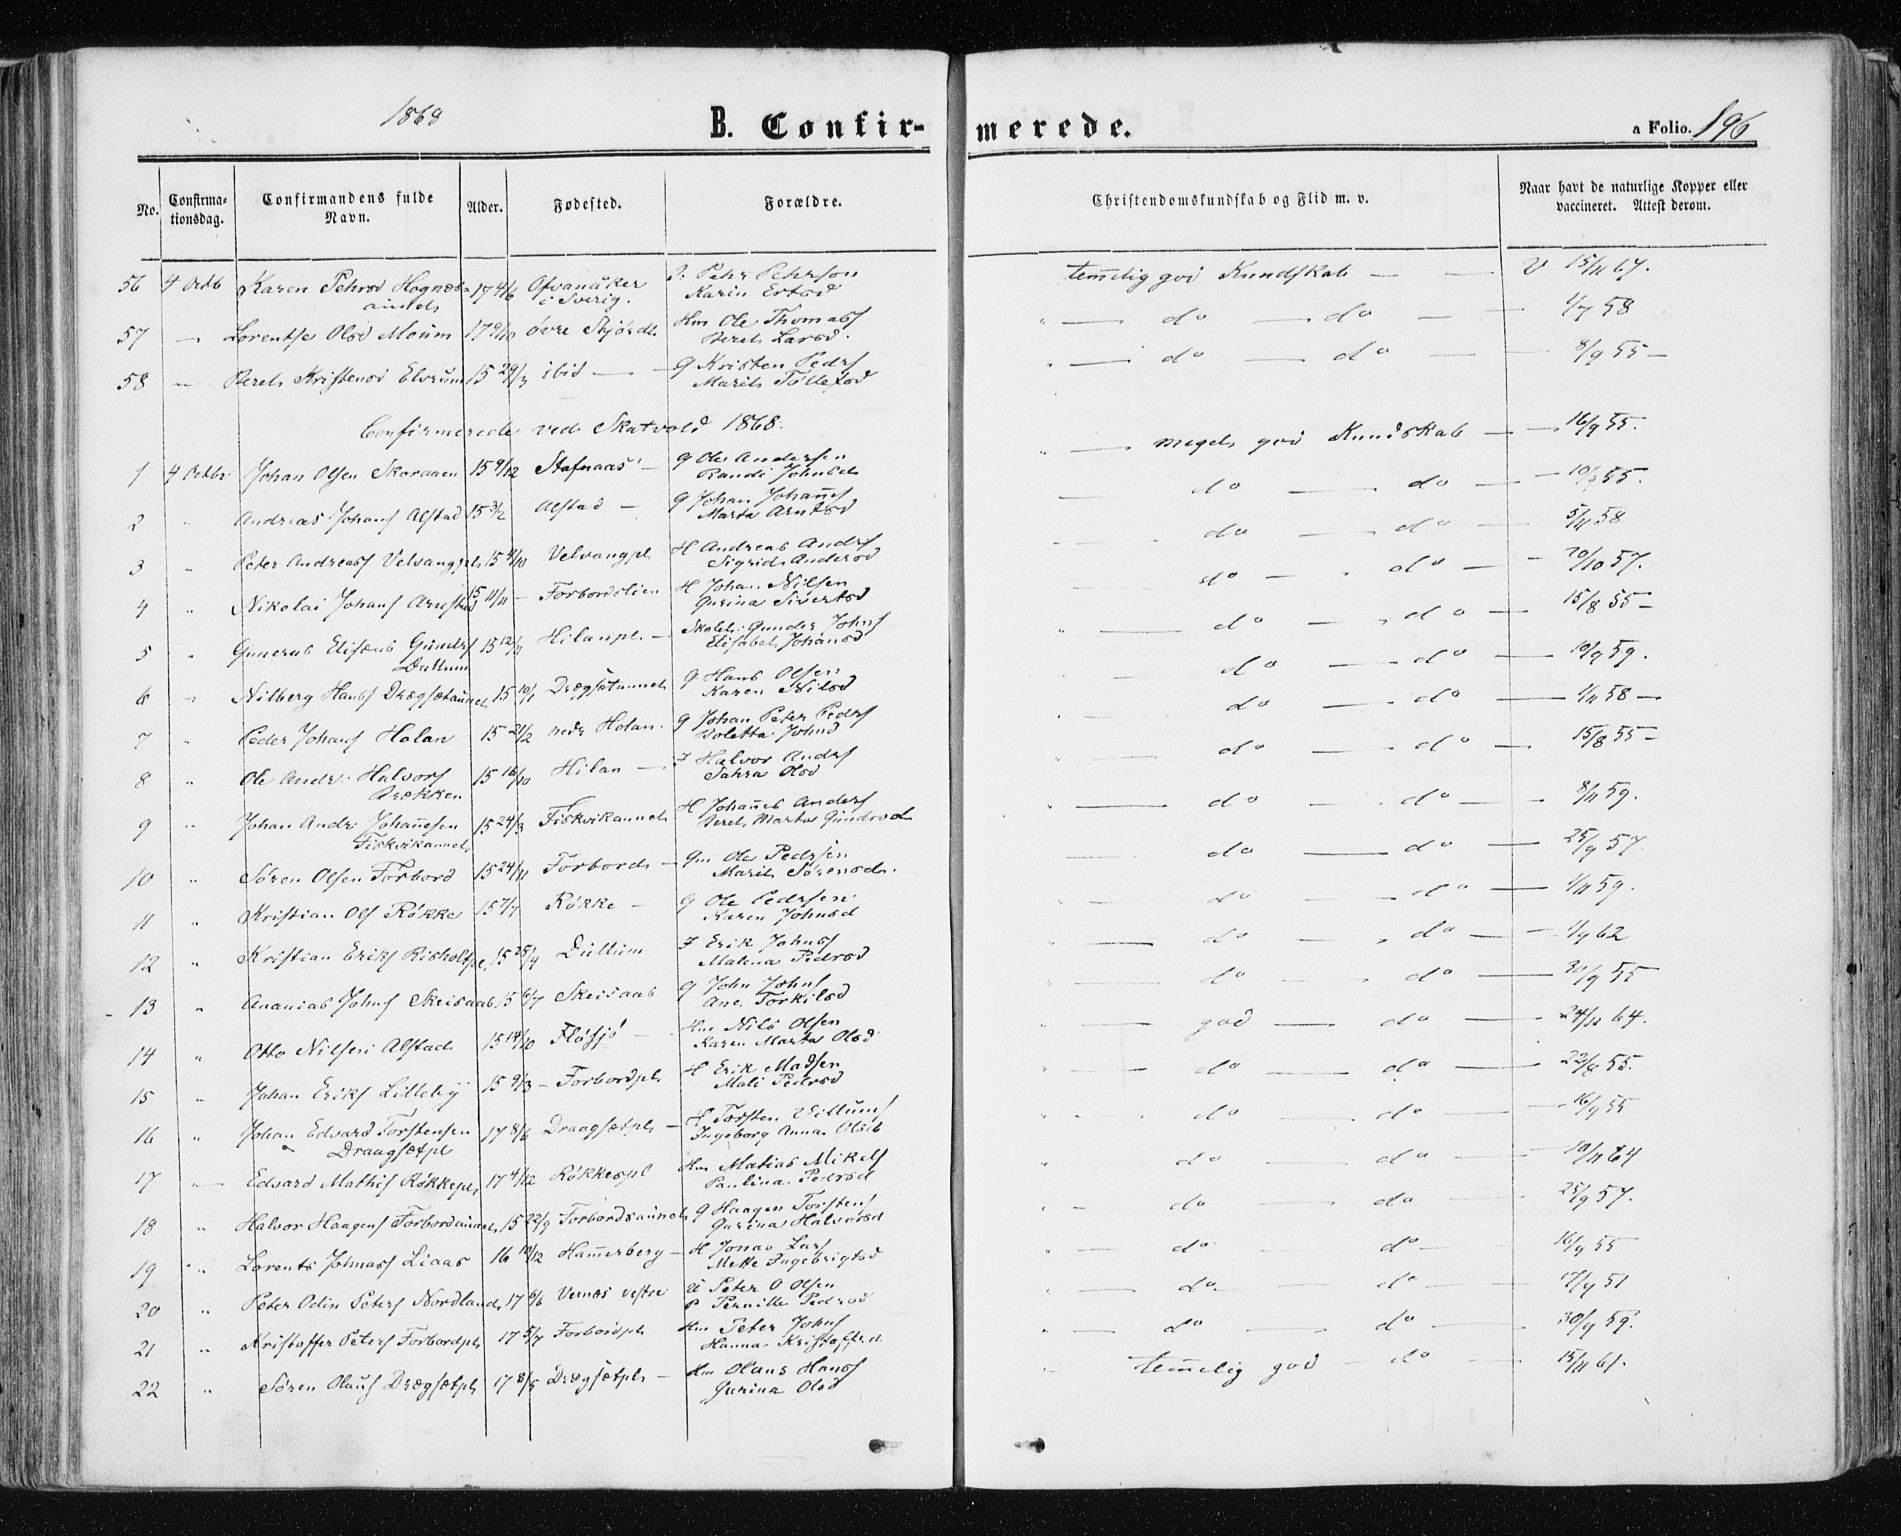 1868
B. Confir-
merede.
a Folio. 196
No.
Confirma-
tionsdag.
Confirmandens fulde
Navn.
Alder.
Fødested.
Forældre.
Christendomskundskab og Flid m. v.
Naar havt de naturlige Kopper eller
vaccineret. Attest derom.
56 4 Octb Karen Pehrsd Hognæs- 17 4/6 Ofvanåker Pehr Pehrson temelig god Kundskab — — V 15/11 67.
i Sverig. Karin Ersd
57 — Lorentse Olsd Moum 17 9/10 øvre Stjørdl Hm Ole Thomass " — do — do — — 4/7 58
Beret Larsd.
58 " Beret Kristensd Elvrum 15 29/3 ibid — G Kristen Peders " — do — do — 8/9 55 —
Marit Tollefsd
Confirmerede ved Skatvold 1868.
1 4 Octbr Johan Olsen Skoraaen 15 9/12 Stafnaas — G Ole Andersen " — meget god Kundskab — — 16/9 55.
Randi Johnsd
2 " Andreas Johans Alstad 15 3/2 Alstad — G Johan Johans — do — do — 10/9 55.
Marta Arntsd
3 " Peter Andreass Velvangpl 15 4/10 Velvangpl H Andreas Anders — do — do — 5/11 58
Sigrid Andersd
4 " Nikolai Johans Arnstad 15 11/11 — Forbordslien H Johan Nilsen do — do — 20/10 57.
Gurina Sivertsd
5 " Gunerus Elisæus Gunders 15 12/11 Hilanpl — Skolel: Gunder Johns — do — do — 15/8 55 —
Dullum Elisabet Johansd
6 " Nilberg Hans Drægsetaunet 15 10/1 Drægsetaunet G Hans Olsen do — do — 10/9 59.
Karen Nilsd
7 " Peder Johans Holan 15 21/2 nedr Holan. G Johan Peter Peders do — do — 4/11 58 —
Boletta Johnsd
8 " Ole Andr: Halvors 15 16/10 Hilan — I Halvor Anders do — do — 15/8 55 —
Brækken Sahra Olsd
9 " Johan Andr: Johanesen 15 24/3 Fiskvikaunet H Johanes Anders " — do — do — 8/11 59.
Fiskvikaunet Beret Marta Gundersd
10 " Søren Olsen Forbord 15 24/11 Forbord — Gm Ole Pedersen — do — do — 25/9 57.
Marit Sørensd.
11 " Kristian Ols Røkke 15 7/7 Røkke — G Ole Pedersen — do — do — 4/11 59.
Karen Johnsd
12 " Kristian Eriks Risholtpl 15 25/4 Dullum I Erik Johns — do — do — 1/9 62
Malena Pedersd
13 " Ananias Johns Skeisaas 15 6/7 Skeisaas G John Johns — do — do — 30/9 55
Ane Torkilsd
14 " Otto Nilsen Alstad 15 14/10 Fløsjø — Hm Nils Olsen — god — do — 24/11 64.
Karen Marta Olsd
15 " Johan Eriks Lilleby 15 9/3 — Forbordpl H Erik Madsen — do — do — 22/8 55.
Mali Pedersd
16 " Johan Edvard Torstensen 17 8/6 Draagsetpl — H Torsten Villums — do — do — 16/9 55
Draagsetpl Ingeborg Anna Olsd
17 " Edvard Mathis Røkkepl 17 4/12 Røkkespl Hm Matias Mikels do — do — 10/11 64
Paulina Pedersd
18 " Halvor Haagens Forbordaunet 15 22/9 Forbordsaunet G Haagen Torstens — do — do 25/9 57.
Gurina Halvorsd
19 " Lorents Johnass Liaas 16 10/12 Hamerberg — H Jonas Lars — do — do — 16/9 55
Mette Ingebrigtsd
20 " Peter Odin Peters Nordland 17 6/6 Vernes vestre U Peter O Olsen — do — do — 17/9 51
P Pernille Pedersd
21 " Kristoffer Peters Forbordpl 17 5/7 Forbordpl Hm Peter Johns — do — do — 30/9 59.
Hanna Kristoffersd
22 " Søren Olaus Drægsetpl 17 8/5 Drægsetpl — Hm Olaus Hans — temelig god — do — 15/11 61.
Gurina Olsd